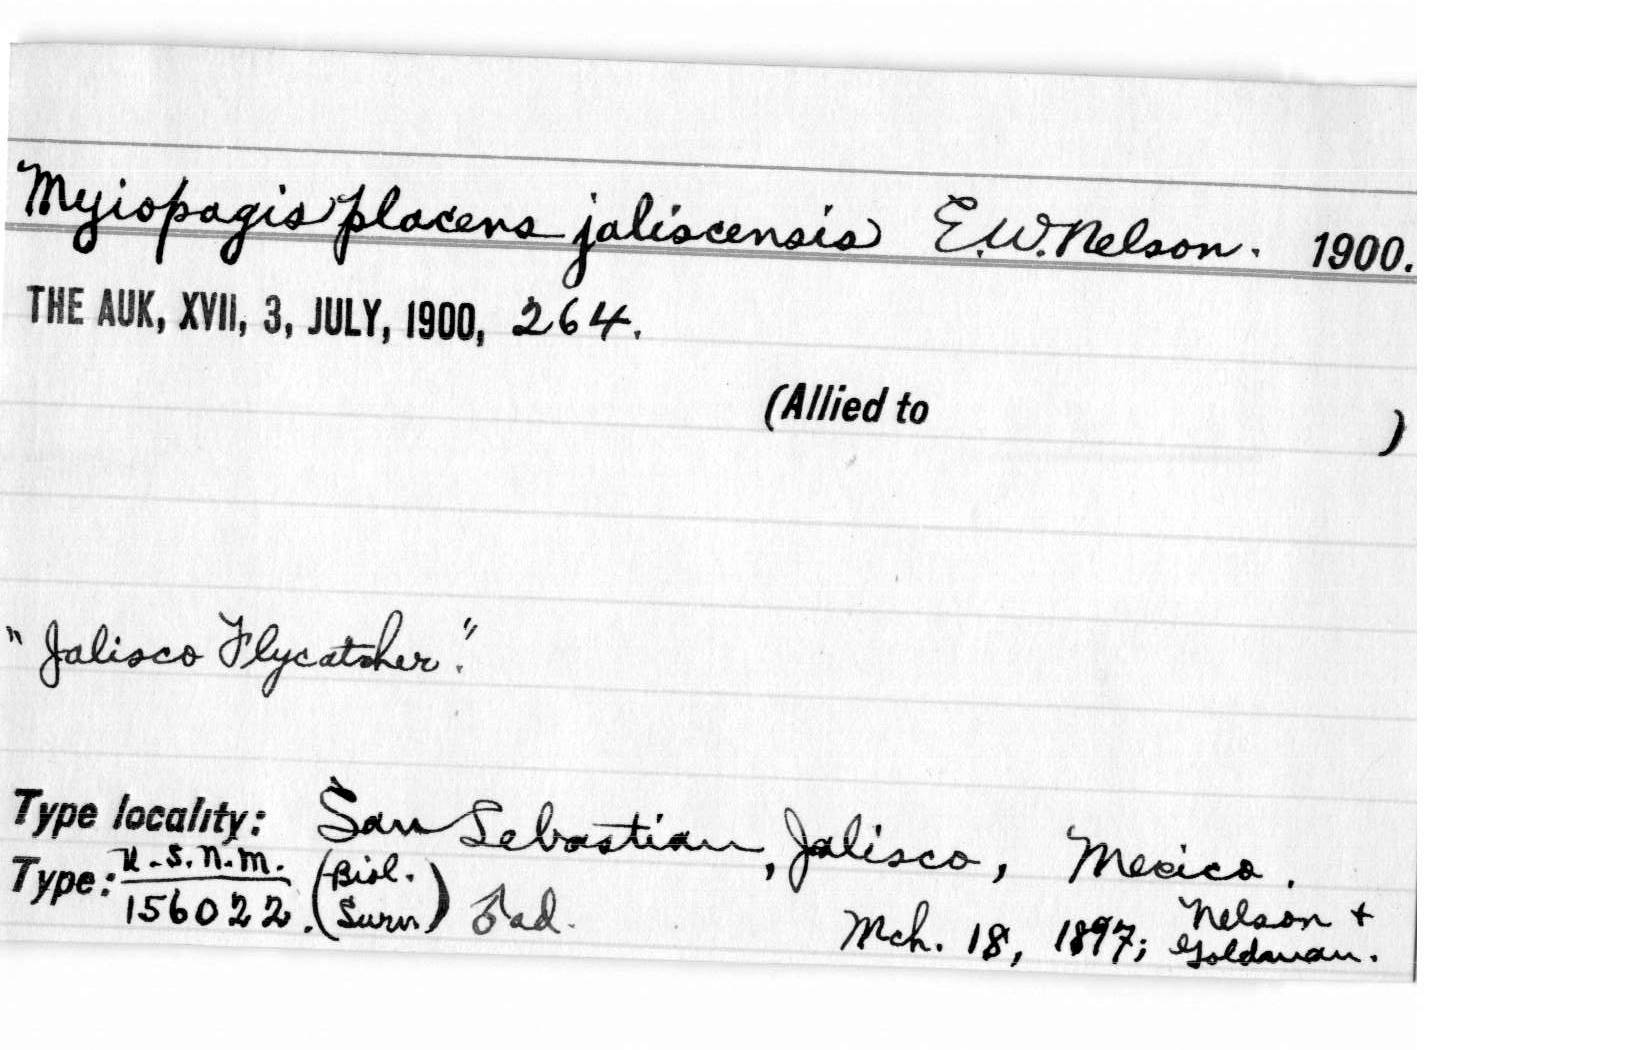 Myiopagis placens jaliscensis E.W. Nelson. 1900.
THE AUK, XVII, 3, JULY, 1900, 264.
(Allied to )
"Jalisco Flycatcher".
Type locality: San Sebastian, Jalisco, Mexico.
Type: U.S.N.M. 156022. (Biol. Surv.) ♂ ad. Mch. 18, 1897; Nelson + Goldman.